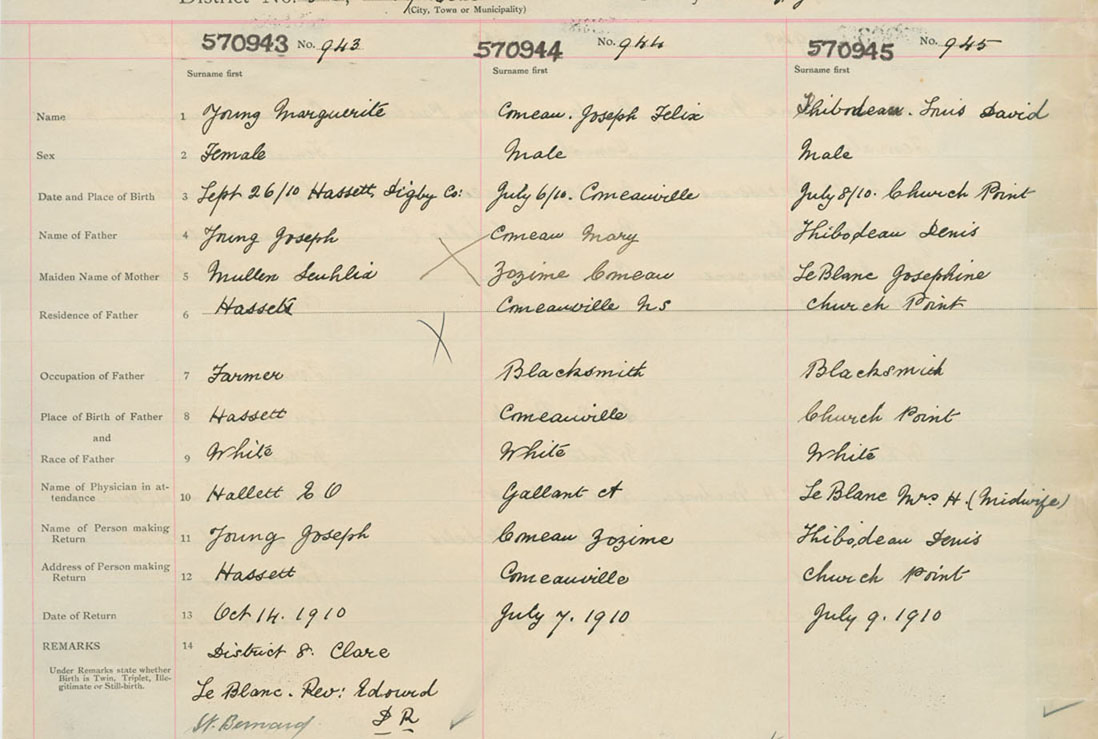 District No.
(City, Town or Municipality)
570943 No. 943 570944 No. 944 570945 No. 945
Surname first Surname first Surname first
Name 1 Young Marguerite Comeau. Joseph Felix Thibodeau. Louis David
Sex 2 Female Male Male
Date and Place of Birth 3 Sept 26/10 Hassett, Digby Co: July 6/10. Comeauville July 8/10. Church Point
Name of Father 4 Young Joseph Comeau Mary Thibodeau Denis
Maiden Name of Mother 5 Mullen Zozime Comeau LeBlanc Josephine
Residence of Father 6 Hassett Comeauville NS Church Point
Occupation of Father 7 Farmer Blacksmith Blacksmith
Place of Birth of Father 8 Hassett Comeauville Church Point
and
Race of Father 9 White White White
Name of Physician in at-
tendance 10 Hallett E O Gallant A Le Blanc Mrs H. (Midwife)
Name of Person making
Return 11 Young Joseph Comeau Zozime Thibodeau Denis
Address of Person making
Return 12 Hassett Comeauville Church Point
Date of Return 13 Oct 14. 1910 July 7. 1910 July 9. 1910
REMARKS 14 District 8. Clare
Under Remarks state whether
Birth is Twin, Triplet, Ille-
gitimate or Still-birth.
Le Blanc. Rev: Edourd
St. Bernard D R